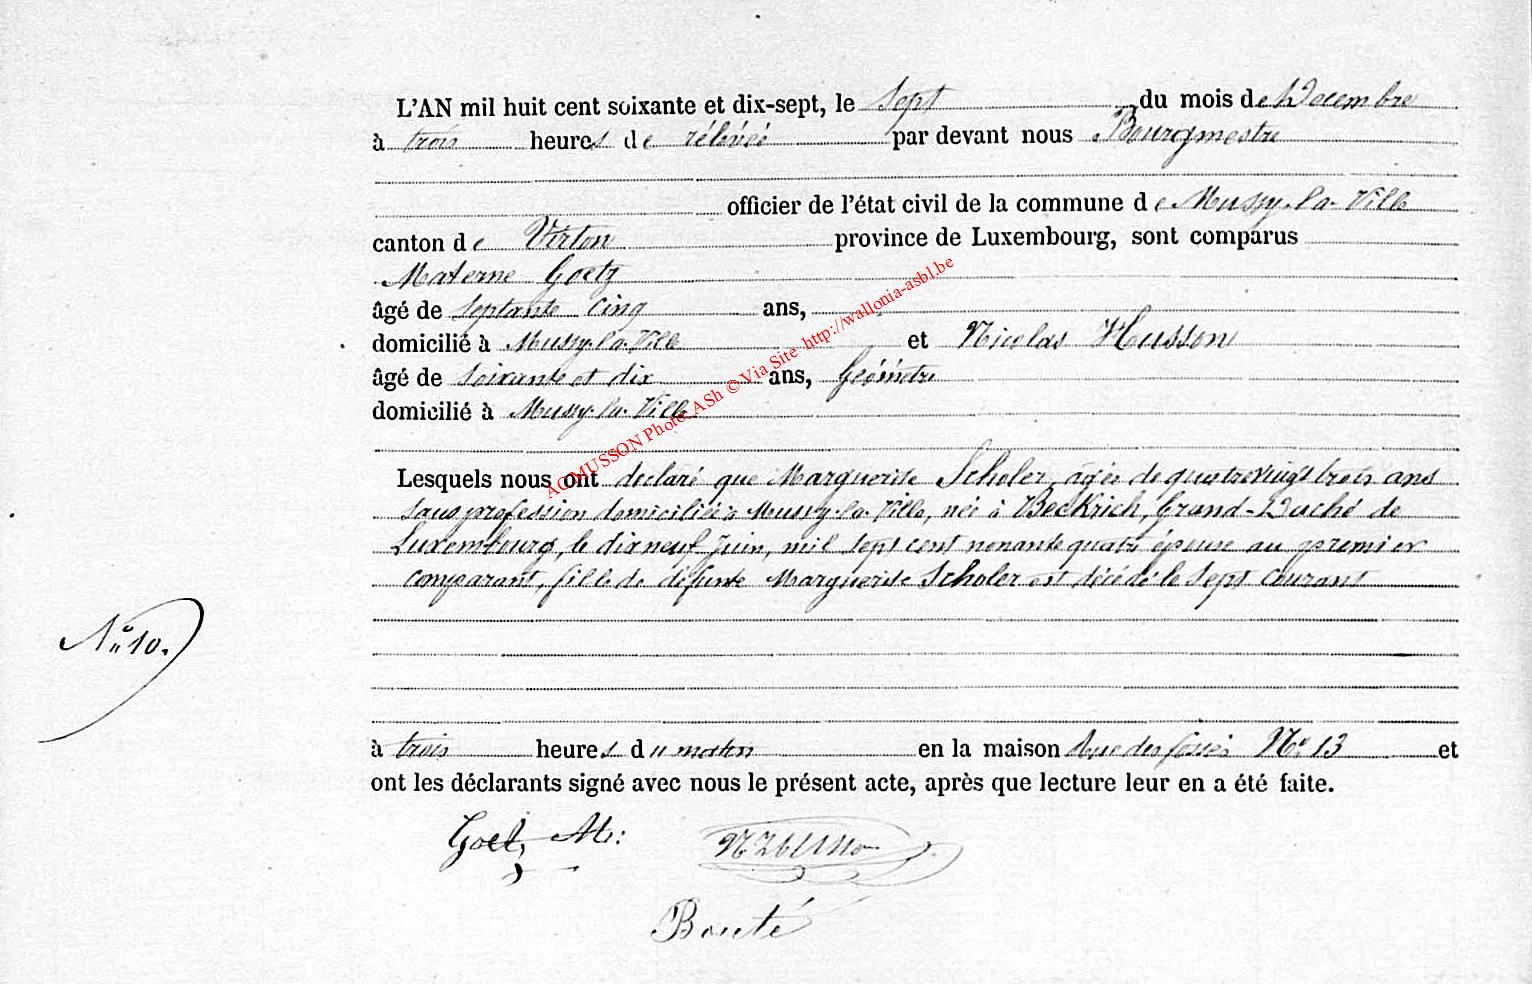 L'AN mil huit cent soixante et dix-sept, le Sept du mois de Décembre
à trois heures de rélévée par devant nous Bourgmestre
officier de l'état civil de la commune de Mussy-la-Ville
canton de Virton province de Luxembourg, sont comparus
Materne Goetz
âgé de Septante Cinq ans,
domicilié à Mussy-la-Ville et Nicolas Husson
âgé de Soixante et dix ans, Géomètre
domicilié à Mussy-la-Ville
Lesquels nous ont déclaré que Marguerite Scholer, agée de quatrevingt trois ans
Sans profession domiciliée à Mussy-la-Ville, née à Beckrich, Grand-Duché de
Luxembourg, le dixneuf Juin, mil sept cent nonante quatre épouse au premier
comparant, fille de défunte Marguerite Scholer est décédée le Sept courant
N° 10.
à trois heures du matin en la maison Rue des fossés N° 13 et
ont les déclarants signé avec nous le présent acte, après que lecture leur en a été faite.
Goetz M: N Husson
Bouté
AC MUSSON Photo ASh © Via Site http://wallonia-asbl.be